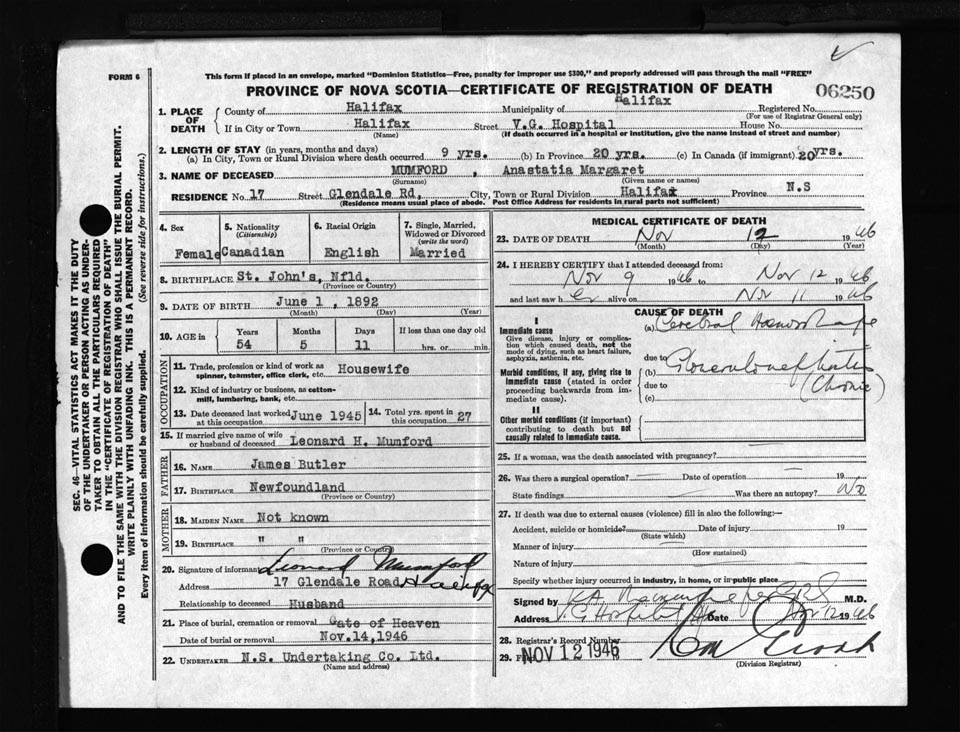 FORM 6
This form if placed in an envelope, marked "Dominion Statistics—Free, penalty for improper use $300," and properly addressed will pass through the mail "FREE"
PROVINCE OF NOVA SCOTIA—CERTIFICATE OF REGISTRATION OF DEATH
06250
1. PLACE OF DEATH
County of Halifax Municipality of Halifax Registered No.
(For use of Registrar General only)
If in City or Town Halifax Street V.G. Hospital House No.
(Name) (If death occurred in a hospital or institution, give the name instead of street and number)
2. LENGTH OF STAY (in years, months and days)
(a) In City, Town or Rural Division where death occurred 9 yrs. (b) In Province 20 yrs. (c) In Canada (if immigrant) 20 yrs.
3. NAME OF DECEASED MUMFORD, Anastatia Margaret
(Surname) (Given name or names)
RESIDENCE No. 17 Street Glendale Rd, City, Town or Rural Division Halifax Province N.S
(Residence means usual place of abode. Post Office Address for residents in rural parts not sufficient)
4. Sex 5. Nationality (Citizenship) 6. Racial Origin 7. Single, Married, Widowed or Divorced (write the word)
Female Canadian English Married
8. BIRTHPLACE St. John's, Nfld.
(Province or Country)
9. DATE OF BIRTH June 1, 1892
(Month) (Day) (Year)
10. AGE in Years Months Days If less than one day old
54 5 11 hrs. or min.
OCCUPATION
11. Trade, profession or kind of work as spinner, teamster, office clerk, etc. Housewife
12. Kind of industry or business, as cotton-mill, lumbering, bank, etc.
13. Date deceased last worked at this occupation June 1945 14. Total yrs. spent in this occupation 27
15. If married give name of wife or husband of deceased Leonard H. Mumford
FATHER
16. NAME James Butler
17. BIRTHPLACE Newfoundland
(Province or Country)
MOTHER
18. MAIDEN NAME Not known
19. BIRTHPLACE " "
(Province or Country)
20. Signature of informant Leonard Mumford
Address 17 Glendale Road Halifax
Relationship to deceased Husband
21. Place of burial, cremation or removal Gate of Heaven
Date of burial or removal Nov.14,1946
22. UNDERTAKER N.S. Undertaking Co. Ltd.
(Name and address)
MEDICAL CERTIFICATE OF DEATH
23. DATE OF DEATH Nov 12 1946
(Month) (Day) (Year)
24. I HEREBY CERTIFY that I attended deceased from:
Nov 9 1946 to Nov 12 1946
and last saw her alive on Nov 11 1946
CAUSE OF DEATH
I
Immediate cause
Give disease, injury or complication which caused death, not the mode of dying, such as heart failure, asphyxia, asthenia, etc.
(a) Cerebral Hemorrhage
due to
Morbid conditions, if any, giving rise to immediate cause (stated in order proceeding backwards from immediate cause).
(b) Glomerulonephritis
due to (Chronic)
(c)
II
Other morbid conditions (if important) contributing to death but not causally related to immediate cause.
25. If a woman, was the death associated with pregnancy?
26. Was there a surgical operation? Date of operation 19
State findings Was there an autopsy? No
27. If death was due to external causes (violence) fill in also the following:—
Accident, suicide or homicide? Date of injury 19
(State which)
Manner of injury
(How sustained)
Nature of injury
Specify whether injury occurred in industry, in home, or in public place
Signed by M.D.
Address V.G. Hospital Date Nov 12 1946
28. Registrar's Record Number
29. NOV 12 1946
(Division Registrar)
SEC. 46—VITAL STATISTICS ACT MAKES IT THE DUTY
OF THE UNDERTAKER OR PERSON ACTING AS UNDER-
TAKER TO OBTAIN ALL THE PARTICULARS REQUIRED
IN THE "CERTIFICATE OF REGISTRATION OF DEATH"
AND TO FILE THE SAME WITH THE DIVISION REGISTRAR WHO SHALL ISSUE THE BURIAL PERMIT.
WRITE PLAINLY WITH UNFADING INK. THIS IS A PERMANENT RECORD.
Every item of information should be carefully supplied. (See reverse side for instructions.)